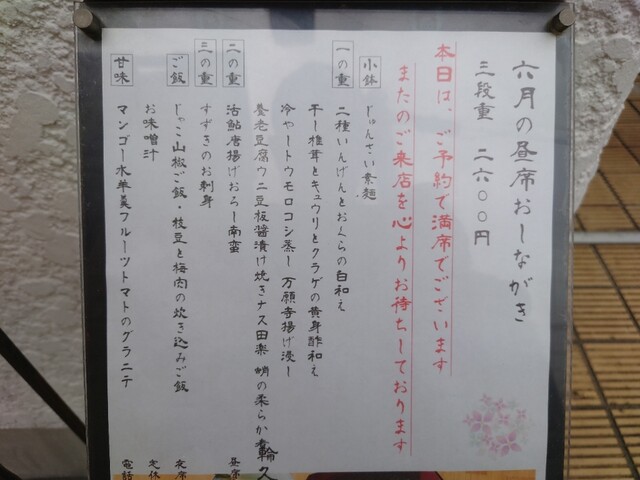 六月の昼席おしながき
三段重　二六〇〇円
本日は、ご予約で満席でございます
またのご来店を心よりお待ちしております
小鉢　じゅんさい素麺
一の重　二種いんげんとおくらの白和え
干し椎茸とキュウリとクラゲの黄身酢和え
冷やしトウモロコシ蒸し　万願寺揚げ浸し
養老豆腐ウニ豆板醬漬け焼きナス田楽　蛸の柔らか煮
二の重　活鮎唐揚げおろし南蛮
三の重　すずきのお刺身
ご飯　じゃこ山椒ご飯・枝豆と梅肉の炊き込みご飯
お味噌汁
甘味　マンゴー水羊羹フルーツトマトのグラニテ
輪久
昼席
夜席
定休
電話